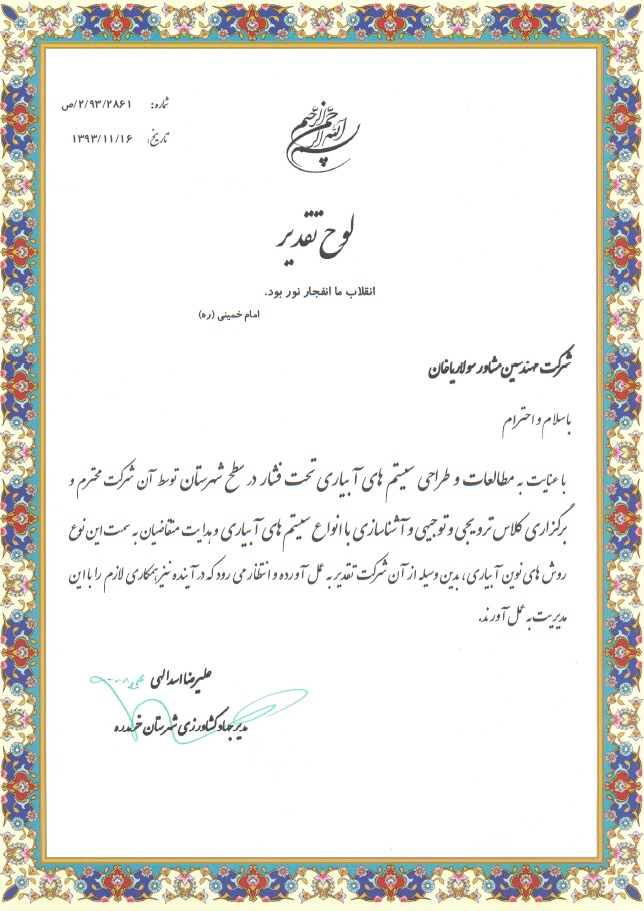 شماره: ۲/۹۳/۲۸۶۱/ص
تاریخ: ۱۳۹۳/۱۱/۱۶
بسم الله الرحمن الرحیم
لوح تقدیر
انقلاب ما انفجار نور بود.
امام خمینی (ره)
شرکت مهندسین مشاور مولار یاغان
با سلام و احترام
با عنایت به مطالعات و طراحی سیستم های آبیاری تحت فشار در سطح شهرستان توسط آن شرکت محترم و
برگزاری کلاس ترویجی و توجیهی و آشناسازی با انواع سیستم های آبیاری و هدایت متقاضیان به سمت این نوع
روش های نوین آبیاری، بدین وسیله از آن شرکت تقدیر به عمل آورده و انتظار می رود که در آینده نیز همکاری لازم را با این
مدیریت به عمل آورند.
علیرضا اسدالهی
مدیر جهاد کشاورزی شهرستان خرمدره